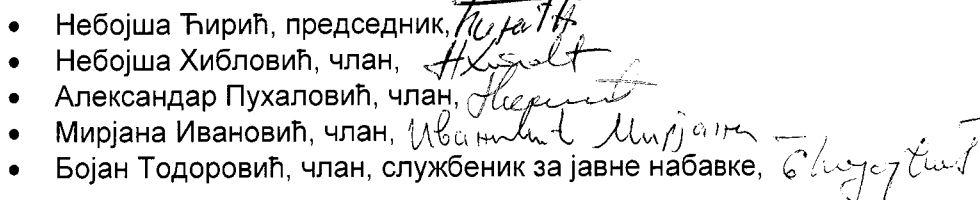 • Небојша Ћирић, председник,
• Небојша Хибловић, члан,
• Александар Пухаловић, члан,
• Мирјана Ивановић, члан, Ивановић Мирјана
• Бојан Тодоровић, члан, службеник за јавне набавке,